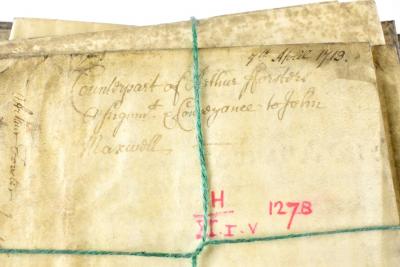 7th April 1713.
Counterpart of Arthur Forsters
Assignmt & Conveyance to John
Maxwell
H
II. I. V 1278